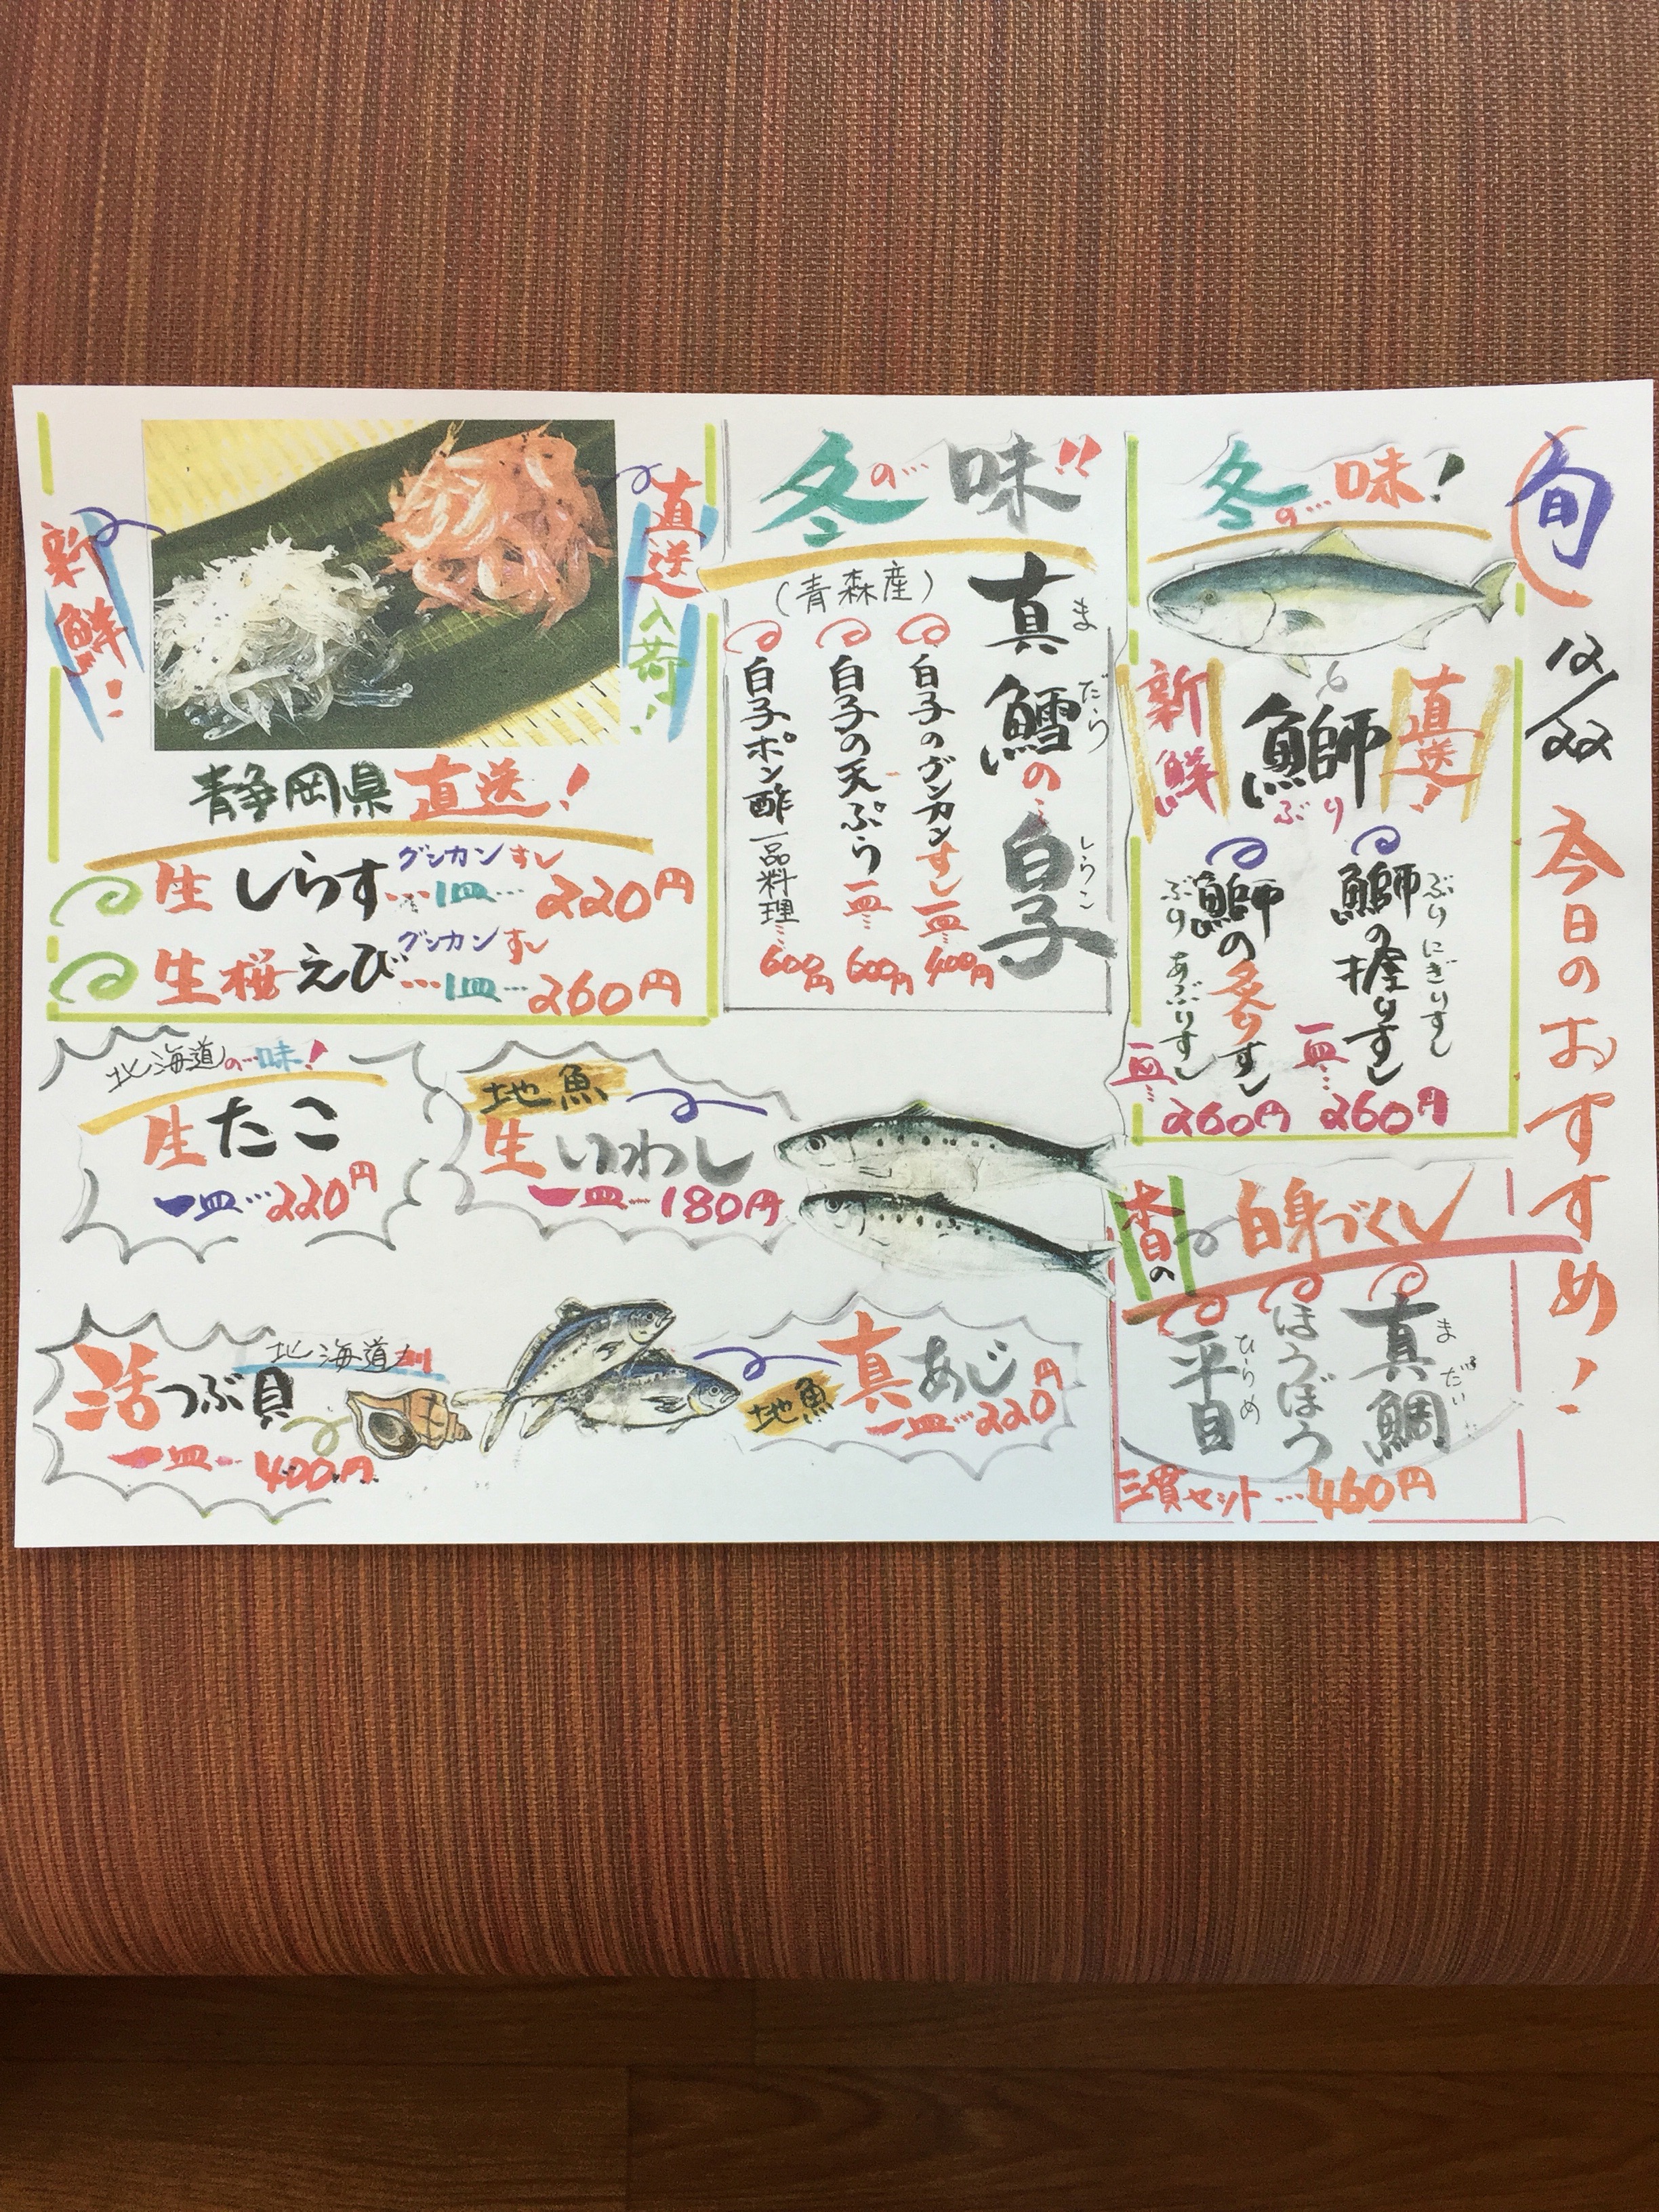 旬
12/22
今日のおすすめ!
冬の…味!
新鮮
鰤
ぶり
直送!
ぶりにぎりすし
鰤の握りすし
一皿…
260円
ぶりあぶりすし
鰤の炙りすし
一皿…
260円
本日の
白身づくし
真鯛
まだい
ほうぼう
平目
ひらめ
三貫セット…460円
冬の…味!!
真鱈の…白子
まだら
しらこ
(青森産)
白子のグンカンすし一皿…400円
白子の天ぷら一皿…600円
白子ポン酢一品料理…600円
新鮮!
直送入荷!
静岡県直送!
グンカンすし
生しらす…1皿…220円
グンカンすし
生桜えび…1皿…260円
北海道の…味!
生たこ
一皿…220円
地魚
生いわし
一皿…180円
北海道
活つぶ貝
一皿…400円
地魚
真あじ
一皿…220円